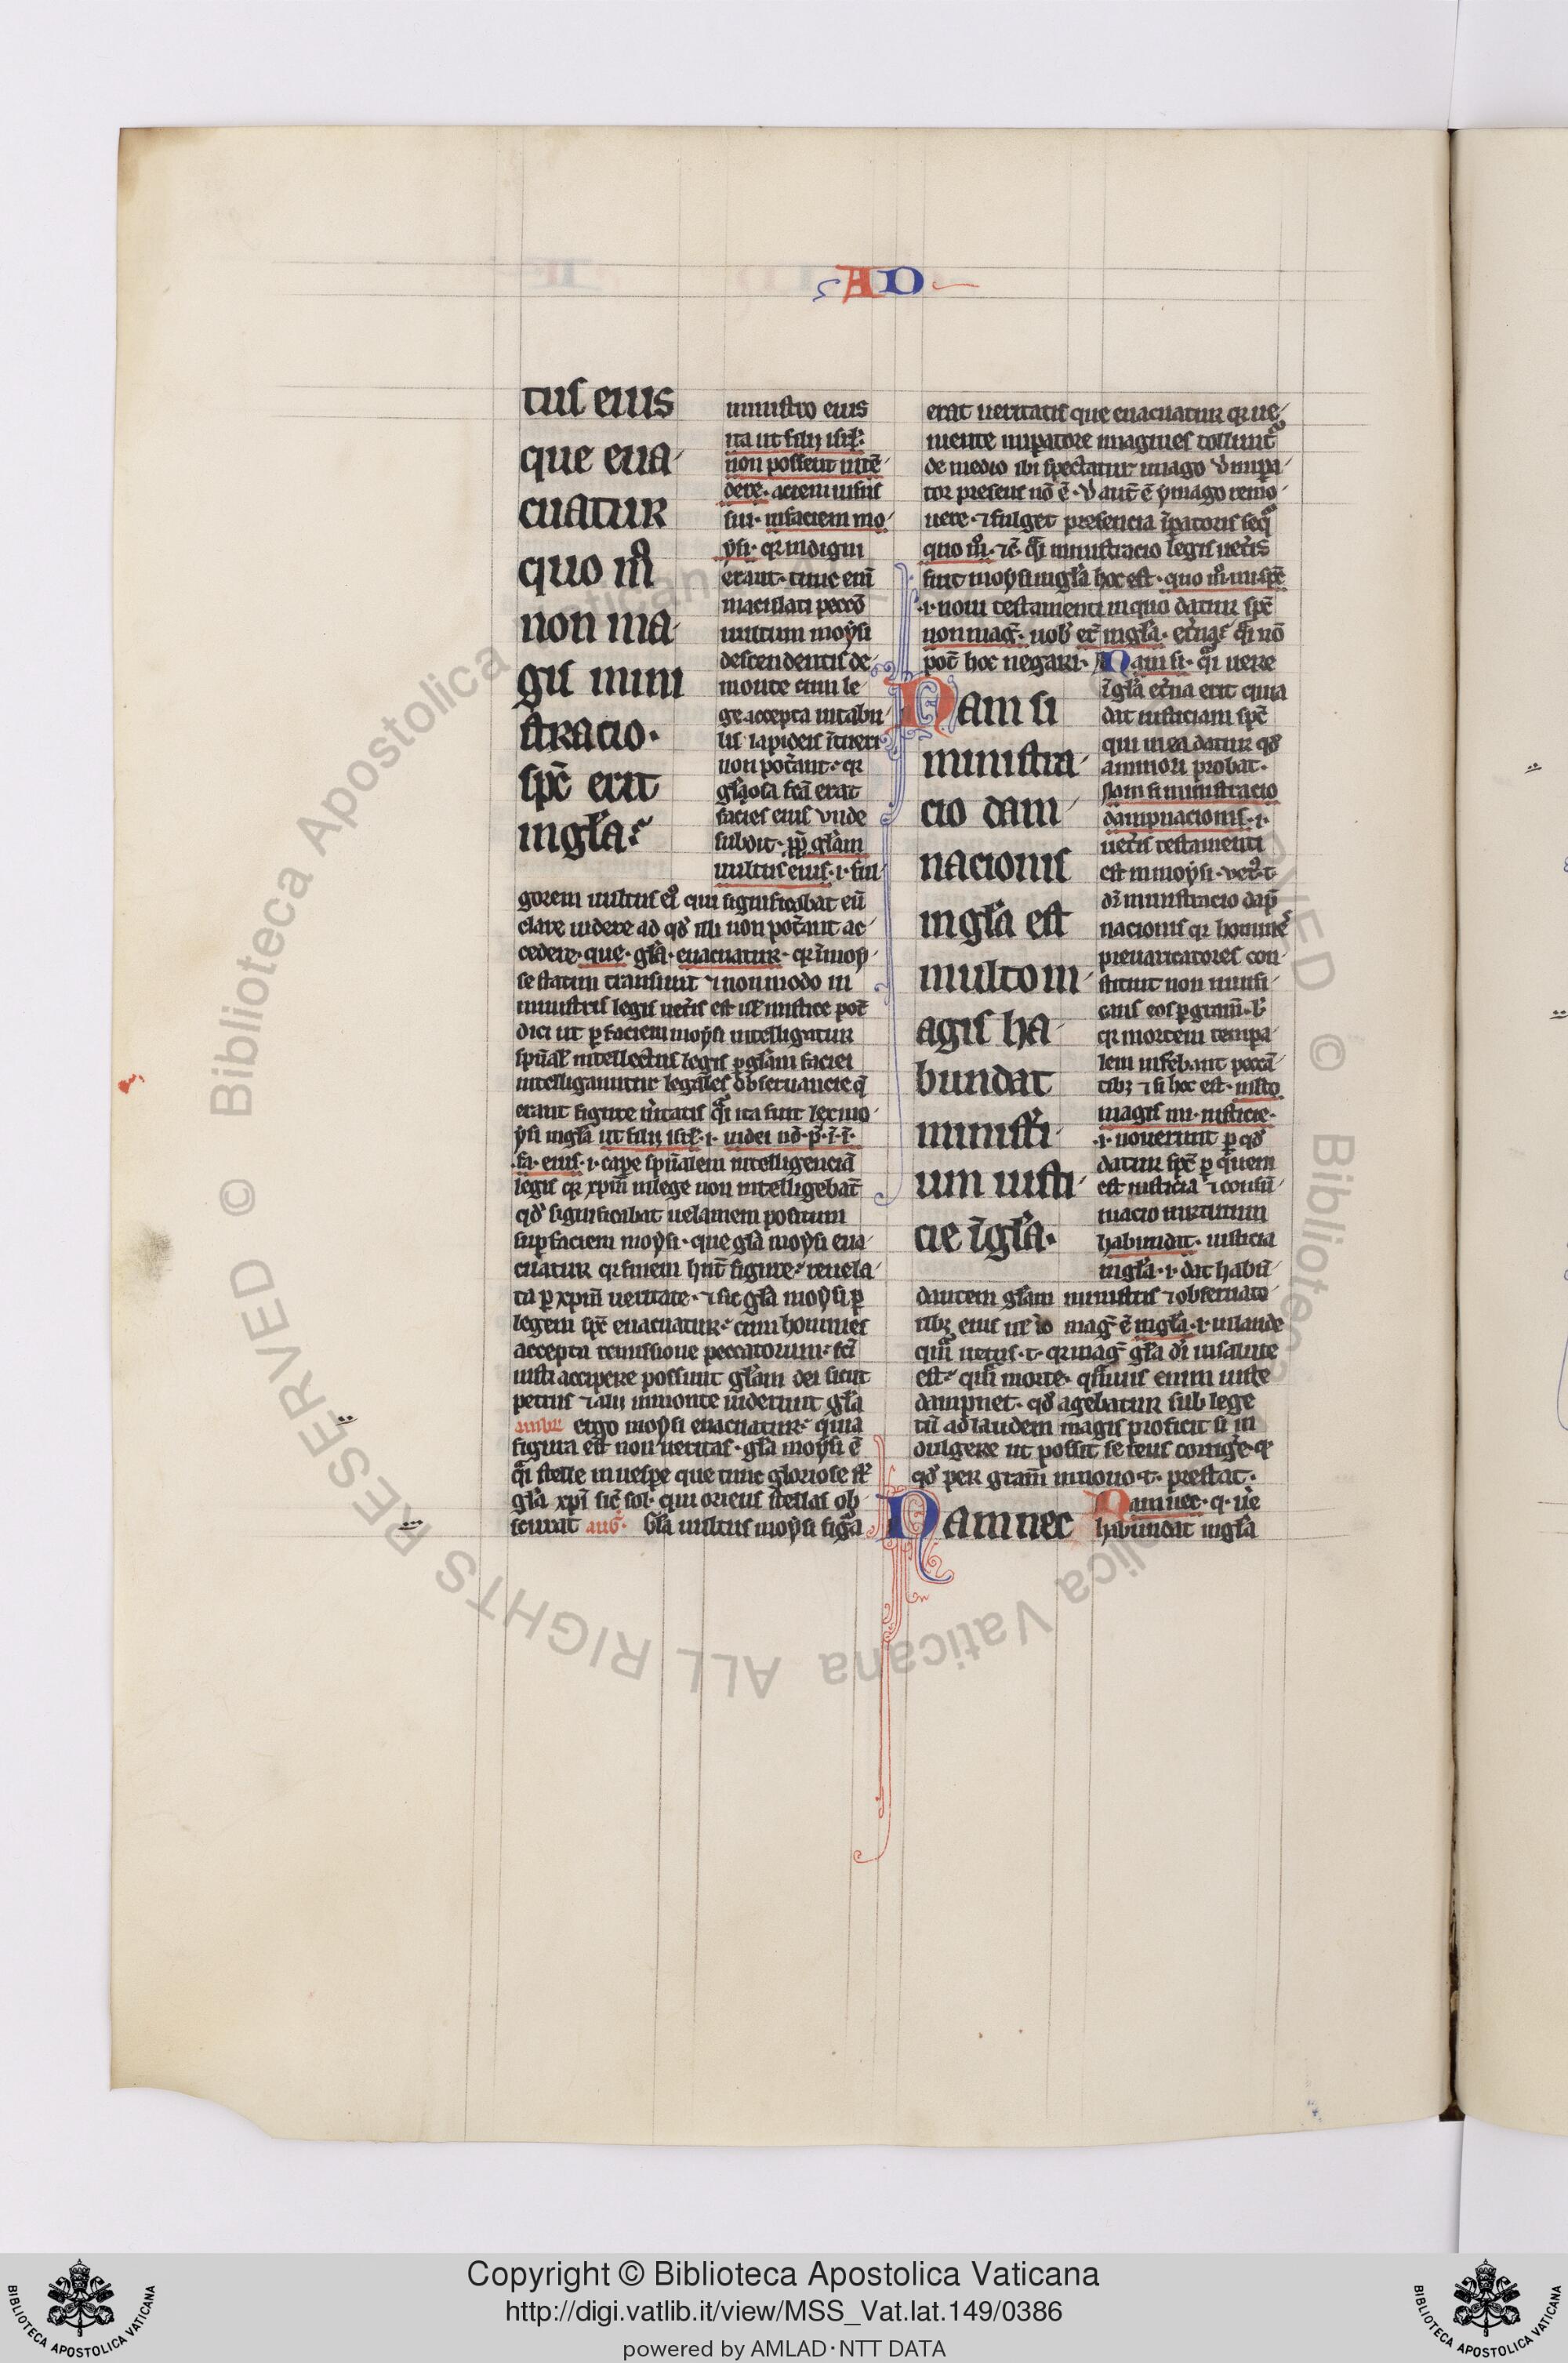 AD
tuſ eius
que eua
cuatur
quo m̊
non ma
giſ mini
ſtracio·
ſpc̄ erit
ingl̄a?
miniſtro eius
ita ut filij iſrl̄·
non poſſent intē
dere· aciem uiſus
ſui· infaciem mo
ẏſi· qr indigni
erant· tunc eni̅
maculati pecc̄o
uultum moẏſi
deſcendentiſ de
monte cum le
ge accepta intabu
liſ lapideiſ ītueri
non pot̄ant· qr
gl̄oſa fc̄a erat
facieſ eiuſ vnde
ſubdit· ꝓpt̄ gl̄am
uultus eius·i· ful
gorem uultuſ eiꝰ qui ſignificabat eū
clare uidere ad qd̓ illi non pot̄ant ac
cedere· que· gl̄a· euacuatur· qr īmoẏ
ſe ſtatim tranſiuit ⁊ non modo in
miniſtriſ legiſ uet̓iſ eſt ul̓ miſtice pot̄
dici ut ꝑ faciem moẏſi intelligatur
ſpūal̓ intellectuſ legiſ ꝑ gl̄am faciei
intelligantur legaleſ obſeruancie q̄
erant figure u̓itatiſ qͣſi ita fuit lex mo
ẏſi ingl̄a ut filij iſrl̄·i· iudei nō·p̄·ī·ī·
fa· eius·i· cape ſpūalem intelligenciā
legiſ qr xp̄m inlege non intelligebāt
qd̓ ſignificabat uelamem poſitum
ſup faciem moẏſi· que gl̄a moẏſi eua
cuatur qr finem hn̄t figure? reuela
ta ꝑ xp̄m ueritate· ⁊ ſic gl̄a moẏſi ꝑ
legem ſpc̄ euacuatur? cum homineſ
accepta remiſſione peccatorum? fc̄i
iuſti accipere poſſunt gl̄am dei ſicut
petrus ⁊ alij inmonte uiderunt gl̄a
ambr̄ ergo moẏſi euacuatur? quia
figura eſt non ueritaſ· gl̄a moẏſi ē
qͣſi ſtelle in ueſpe que tunc glorioſe ſt̄
gl̄a xp̄i ſic̄ ſol· qui orienſ ſtellaſ ob
ſcurat aug̓· Gl̄a uultus moẏſi fig̓a
erat ueritatiſ que euacuatur qr ue
niente inpatore imagineſ tollunt̄
de medio ibi ſpectatur imago v̓ inpa
tor preſens nō ē· v̓ aut̄ ē ẏmago remo
uete· ⁊ fulget preſencia īpatoriſ ſeqͥ
quo m̊· ⁊c̄· qͣſi miniſtracio legiſ uet̓is
fuit moẏſi ingl̄a hoc eſt· quo m̊·mi·ſpc̄
·i· noui teſtamenti in quo datur ſpc̄
non mag̓· nob̓ et̄ ingl̄a· et̓na? qͣſi nō
pot̄ hoc negari· Nam ſi· qͣſi uere
Nam ſi
miniſtra
cio dam
nacionis
ingl̄a eſt
multo m
agiſ ha
bundat
miniſt̓i
um iuſti
cie īgl̄a·
īgl̄a et̓na erit cuia
dat iuſticiam ſpc̄
qui in ea datur qd̓
aminori probat·
Nam ſi miniſtracio
dampnacionis·i·
uet̓iſ teſtamenti
eſt in moẏſi· vet̓·t·
dr̄ miniſtracio dap̄
nacioniſ qr homineſ
preuaricatoreſ con
ſtituit non muni
enſ eoſ ꝑ gram̄·ł
qr mortem tempa
lem inferebant pecca
tibꝫ ⁊ ſi hoc eſt· multo
magiſ mi·iuſticie·
·i· nouerunt ꝑ qd̓
datur ſpc̄ ꝑ quem
eſt iuſticia ⁊ conſū
macio uirtutum
habundat· iuſticia
ingl̄a·i· dat habū
dantem gl̄am miniſtriſ ⁊ obſeruato
ribꝫ eius mag̓ ē ingl̄a·i·
dampnet· qd̓ agebatur ſub lege
tn̄ ad laudem magiſ proficit ſi in
dulgere ut poſſit ſe reus corrige·
qd̓ per gram̄ innouo·t· preſtat·
Nam nec
Nam nec·q·ue
habundat ingl̄a
Copyright © Biblioteca Apostolica Vaticana
http://digi.vatlib.it/view/MSS_Vat.lat.149/0386
powered by AMLAD·NTT DATA